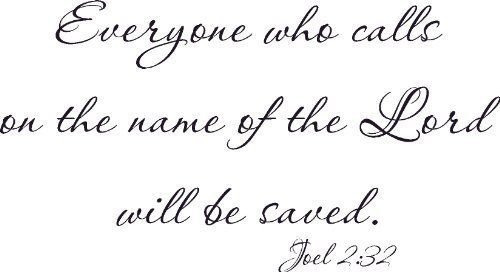 Everyone who calls
on the name of the Lord
will be saved.
Joel 2:32